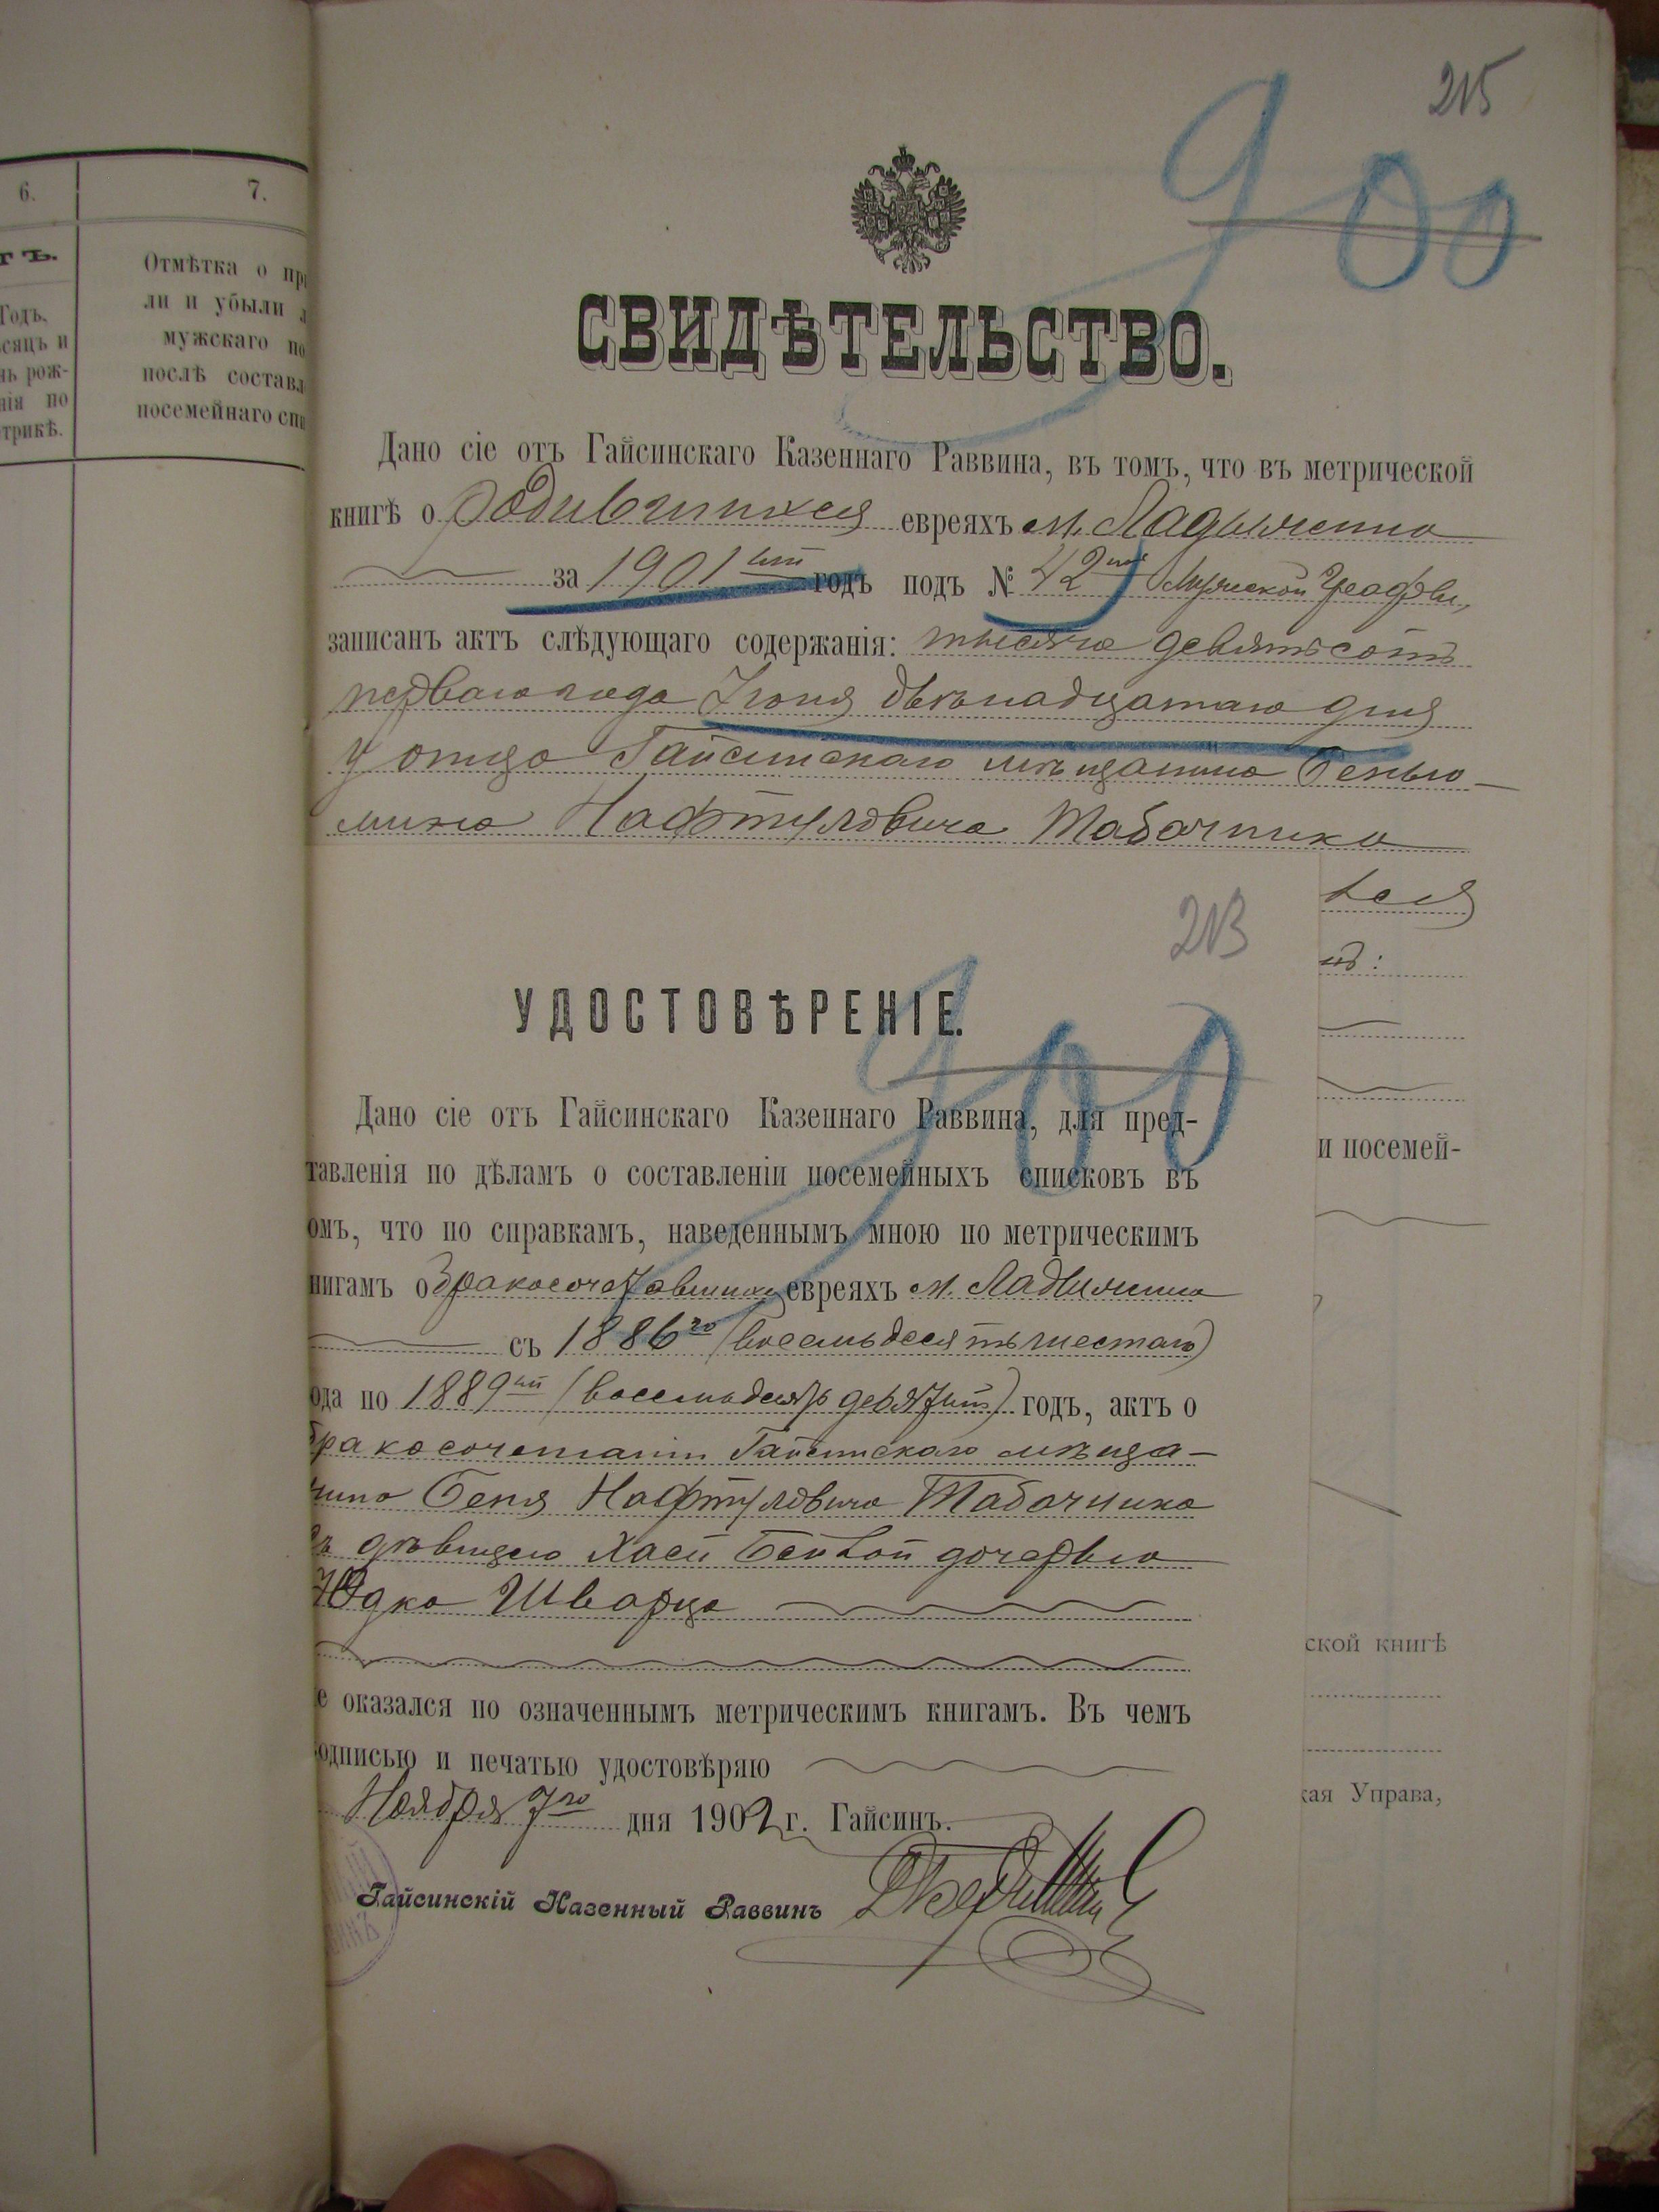 215
900
СВИДѢТЕЛЬСТВО.
Дано сіе отъ Гайсинскаго Казеннаго Раввина, въ томъ, что въ метрической
книгѣ о родившихся евреяхъ м. Ладыжина
за 1901ый годъ подъ № 42мъ Мужской Графы,
записанъ актъ слѣдующаго содержанія: тысяча девятьсотъ
перваго года Іюня двѣнадцатаго дня
у отца Гайсинскаго мѣщанина Беньо-
мина Нафтуловича Табачника
ся
213
нъ:
900
УДОСТОВѢРЕНІЕ.
Дано сіе отъ Гайсинскаго Казеннаго Раввина, для пред-
тавленія по дѣламъ о составленіи посемейныхъ списковъ въ
и посемей-
омъ, что по справкамъ, наведеннымъ мною по метрическимъ
нигамъ о бракосочетавшихся евреяхъ м. Ладыжина
съ 1886го (восемьдесятъ шестаго)
ода по 1889ый (восемьдесятъ девятый) годъ, актъ о
бракосочетаніи Гайсинскаго мѣща-
нина Беня Нафтуловича Табачника
съ дѣвицею Хаей Бейлой дочерью
Юдка Шварца
ской книгѣ
е оказался по означеннымъ метрическимъ книгамъ. Въ чемъ
одписью и печатью удостовѣряю
кая Управа,
Ноября 7го дня 1902 г. Гайсинъ.
Гайсинскій Казенный Раввинъ
6.
7.
тъ.
Отмѣтка о при
Годъ,
ли и убыли л
сяцъ и
мужскаго по
нь рож-
послѣ составл
нія по
посемейнаго спи
трикѣ.